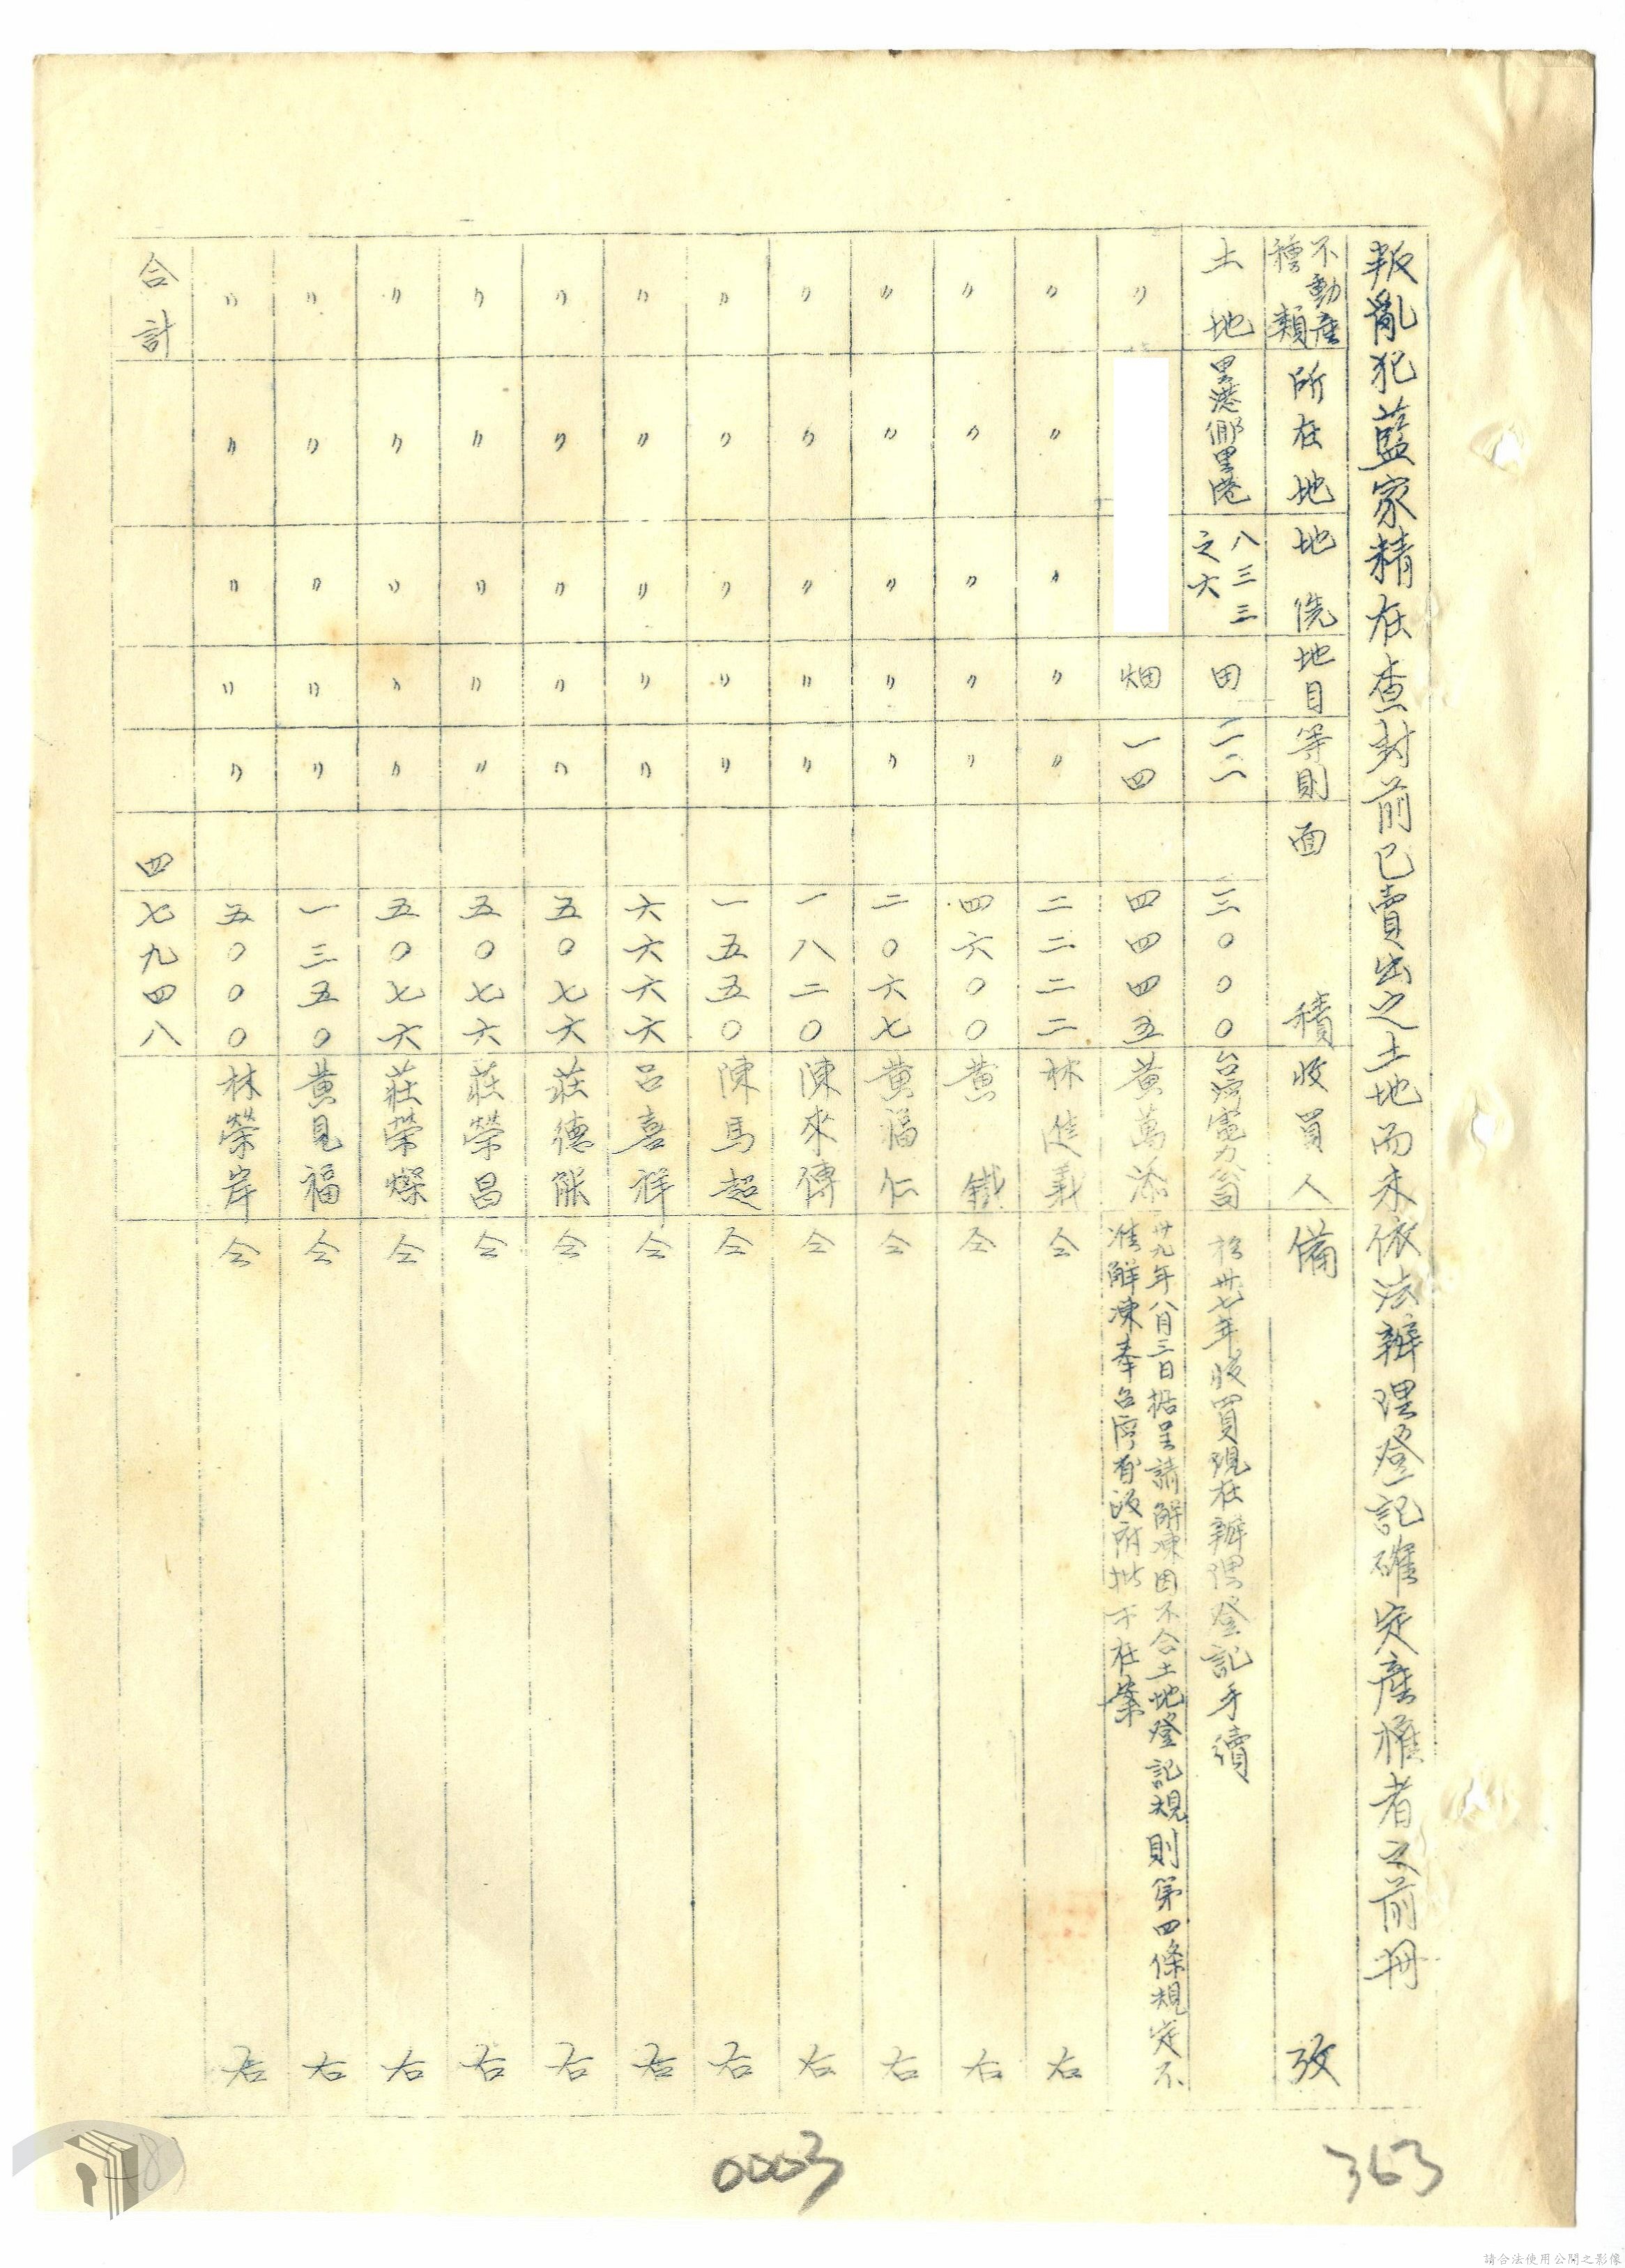 叛亂犯藍家精在查封前已賣出之土地而未依法辦理登記確定產權者之前冊
不動產種類 所在地 地 地目 等則 面積 收買人 備攷
土地 里港鄉里港 八三三之六 田 三〇〇〇 台灣電力公司 於卅七年收買現在辦理登記手續
〃 畑 一四 四四四五 黃萬添 卅九年八月三日據呈請解凍因不合土地登記規則第四條規定不准解凍奉台灣省政府批示在案
〃 〃 〃 〃 〃 二二二二 林進義 仝右
〃 〃 〃 〃 〃 四六〇〇 黃鐵 仝右
〃 〃 〃 〃 〃 二〇六七 黃福仁 仝右
〃 〃 〃 〃 〃 一八二〇 陳來傳 仝右
〃 〃 〃 〃 〃 一五五〇 陳馬超 仝右
〃 〃 〃 〃 〃 六六六六 呂喜祥 仝右
〃 〃 〃 〃 〃 五〇七六 莊德能 仝右
〃 〃 〃 〃 〃 五〇七六 莊榮昌 仝右
〃 〃 〃 〃 〃 五〇七六 莊榮燦 仝右
〃 〃 〃 〃 〃 一三五〇 黃見福 仝右
〃 〃 〃 〃 〃 五〇〇〇 林榮岸 仝右
合計 四七九四八
0003
363
請合法使用公開之影像